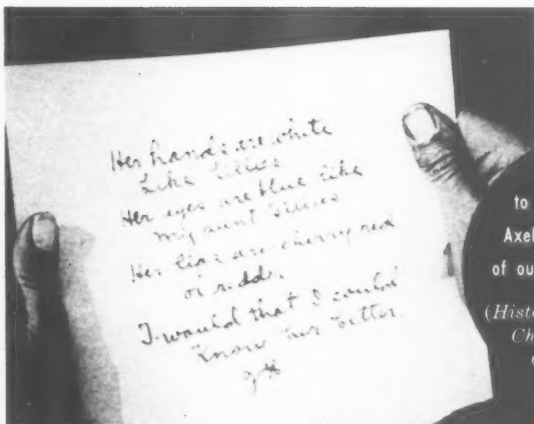 Her hands are white
Like lillies
Her eyes are blue like
my aunt Tillies
Her lips are cherry red
or redder
I would that I could
know her better.
to
Axel
of ou
(Histo
Ch